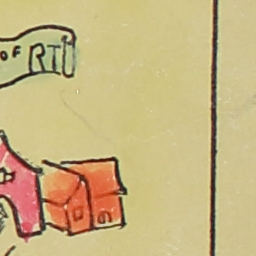 OF RTI